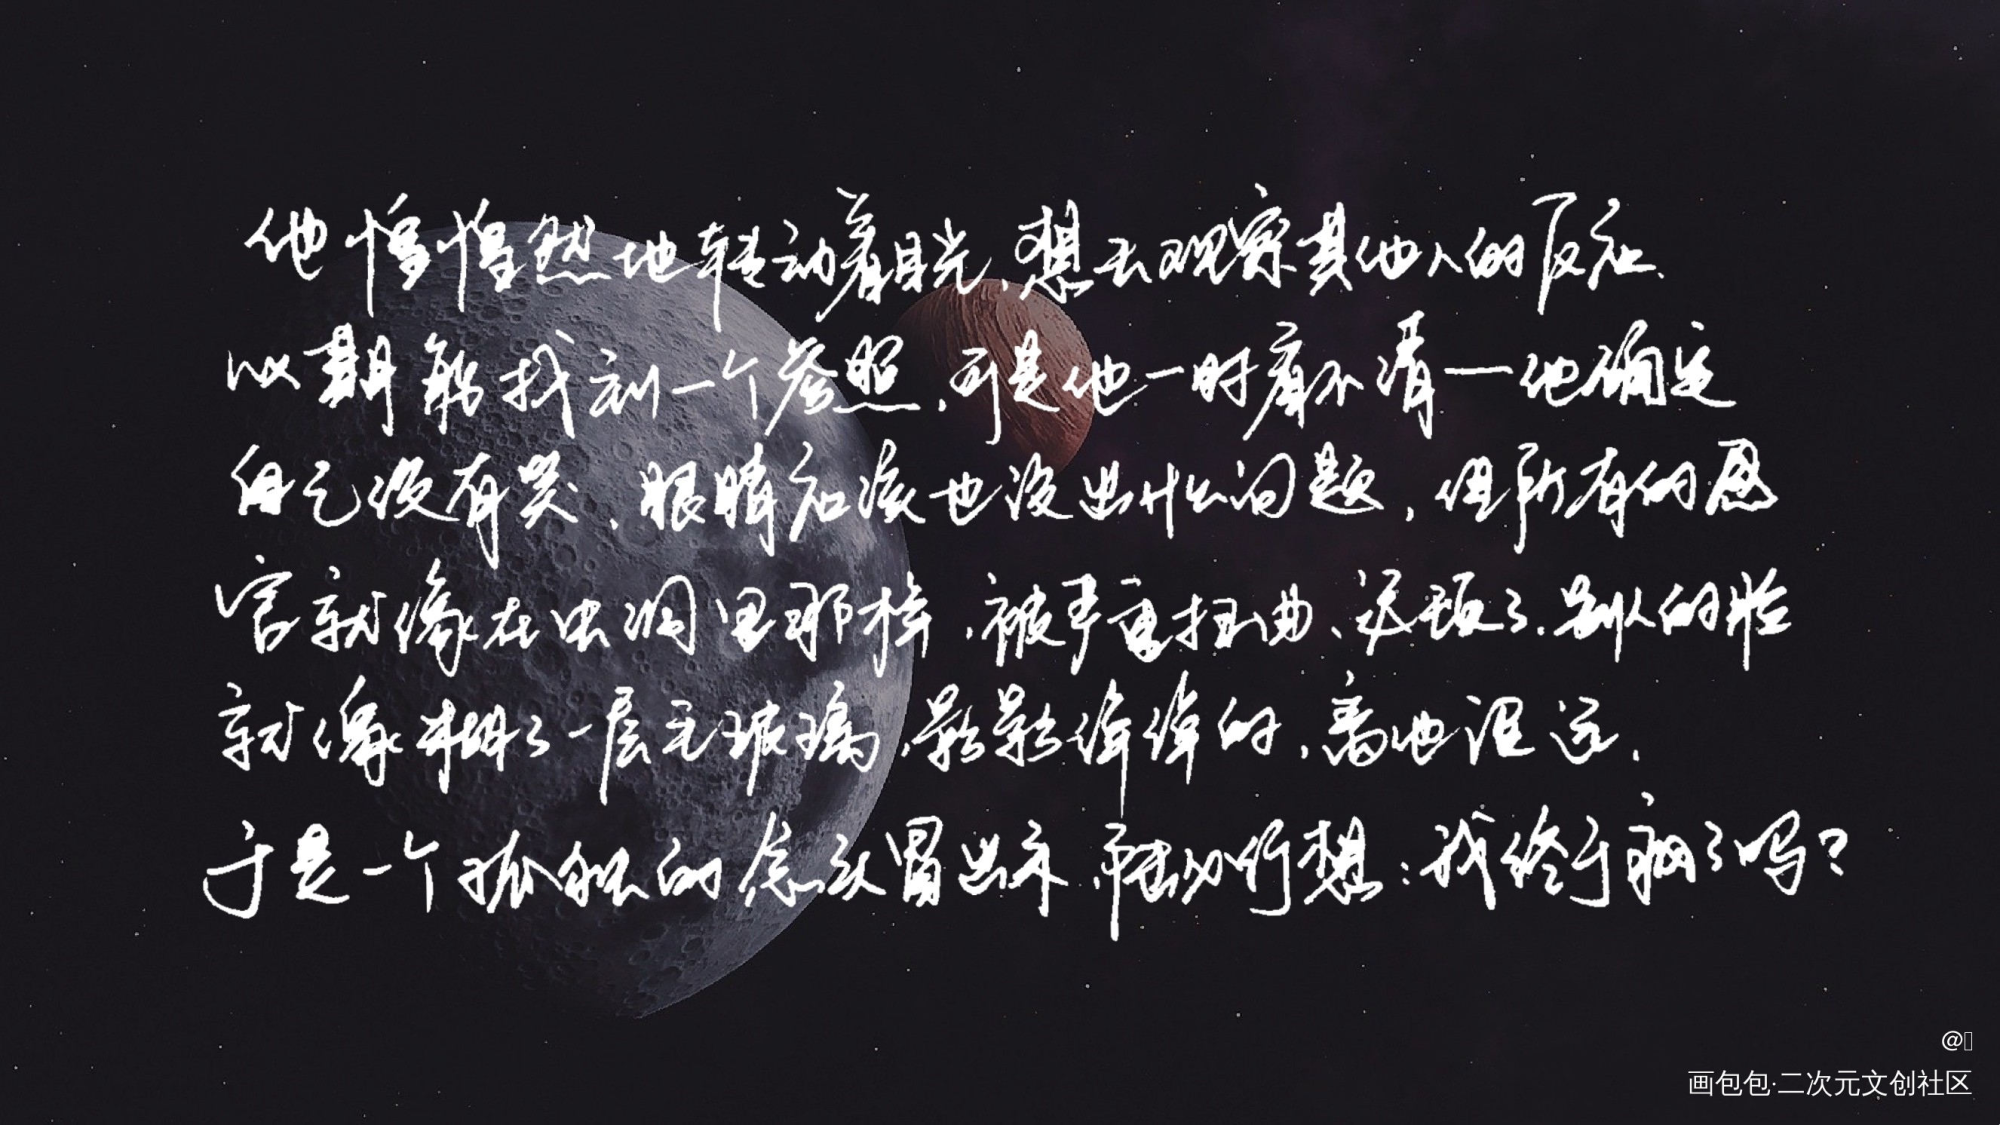 他惶惶然地转动着目光，想去观察其他人的反应，
以期能找到一个参照，可是他一时看不清——他确定
自己没有哭，眼睛应该也没出什么问题，但所有的感
官就像在虫洞里那样，被严重扭曲、迟顿了，别人的脸
就像糊了一层毛玻璃，影影绰绰的，离他很远，
于是一个孤独的念头冒出来，陆必行想：我终于疯了吗？
@
画包包·二次元文创社区